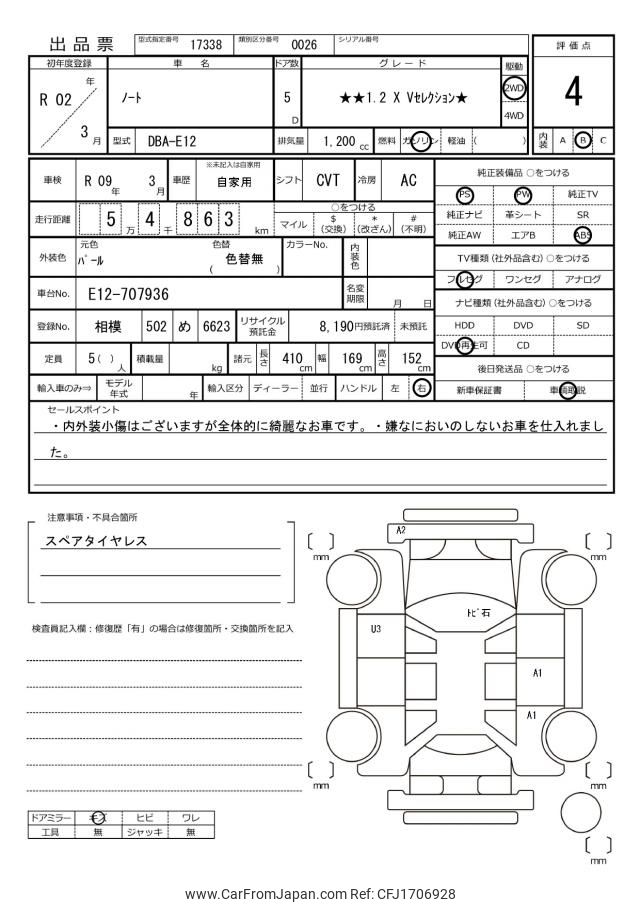 出品票 型式指定番号 17338 類別区分番号 0026 シリアル番号
評価点
4
内装 A B C
初年度登録 車名 ドア数 グレード 駆動
R 02 年 3 月 ノート 5 D ★★1.2 X Vセレクション★ 2WD
4WD
型式 DBA-E12 排気量 1,200 cc 燃料 ガソリン 軽油 ( )
車検 R 09 年 3 月 車歴 ※未記入は自家用 自家用 シフト CVT 冷房 AC
走行距離 5 万 4 千 8 6 3 km ○をつける
マイル $ (交換) * (改ざん) # (不明)
外装色 元色 パール 色替 ( 色替無 ) カラーNo. 内装色
車台No. E12-707936 名変期限 月 日
登録No. 相模 502 め 6623 リサイクル預託金 8,190円預託済 未預託
定員 5( )人 積載量 kg 諸元 長さ 410 cm 幅 169 cm 高さ 152 cm
輸入車のみ⇒ モデル年式 年 輸入区分 ディーラー 並行 ハンドル 左 右
純正装備品 ○をつける
PS PW 純正TV
純正ナビ 革シート SR
純正AW エアB ABS
TV種類(社外品含む) ○をつける
フルセグ ワンセグ アナログ
ナビ種類(社外品含む) ○をつける
HDD DVD SD
DVD再生可 CD
後日発送品 ○をつける
新車保証書 車輌取説
セールスポイント
・内外装小傷はございますが全体的に綺麗なお車です。・嫌なにおいのしないお車を仕入れまし
た。
注意事項・不具合箇所
スペアタイヤレス
検査員記入欄：修復歴「有」の場合は修復箇所・交換箇所を記入
A2
mm
mm
トビ石
U3
A1
A1
mm
mm
mm
ドアミラー キズ ヒビ ワレ
工具 無 ジャッキ 無
www.CarFromJapan.com Ref: CFJ1706928